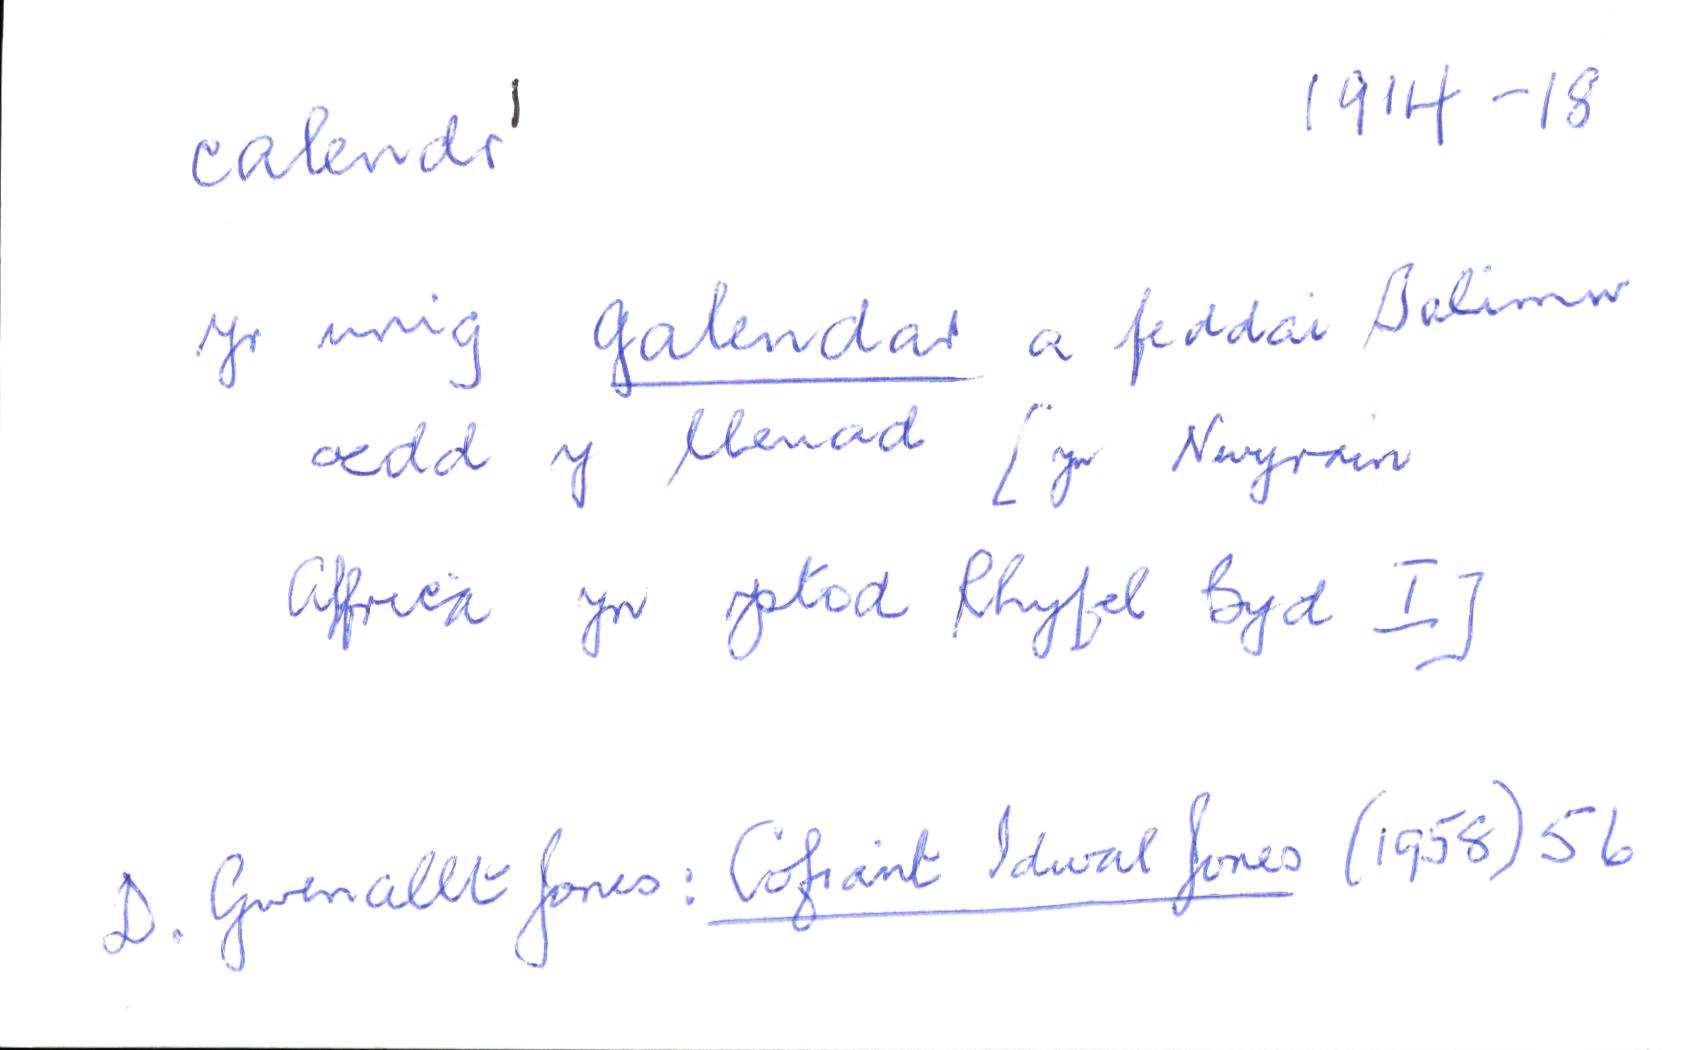 calendr¹ 1914-18
yr unig galendar a feddai Salimw
oedd y lleuad [yn Nwyrain
Affrica yn ystod Rhyfel Byd I]
D. Gwenallt Jones: Cofiant Idwal Jones (1958) 56